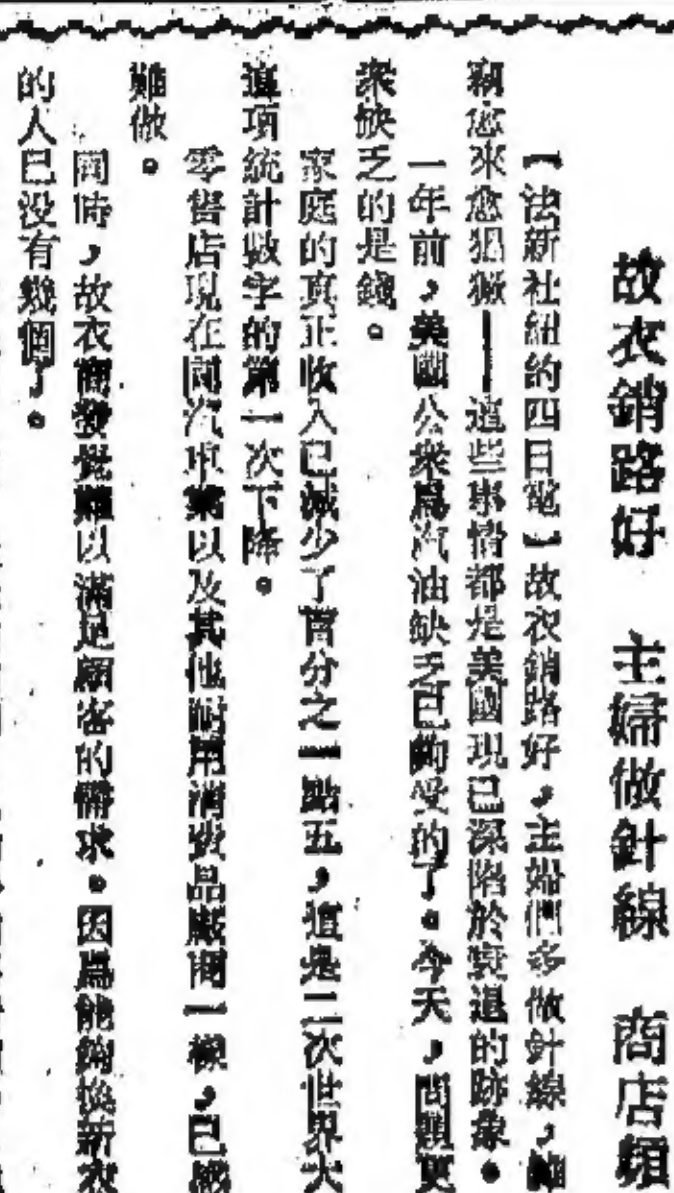 故衣銷路好　主婦做針線　商店頻
【法新社紐約四日電】故衣銷路好，主婦們多做針線，
竊愈來愈猖獗——這些事情都是美國現已深陷於衰退的跡象。
一年前，美國公衆爲汽油缺乏已夠受的了。今天，問題更
衆缺乏的是錢。
家庭的真正收入已減少了百分之一點五，這是二次世界大
這項統計數字的第一次下降。
零售店現在同汽車業以及其他耐用消費品廠商一樣，已感
難做。
同時，故衣商發覺難以滿足顧客的需求。因爲能夠換新衣
的人已没有幾個了。